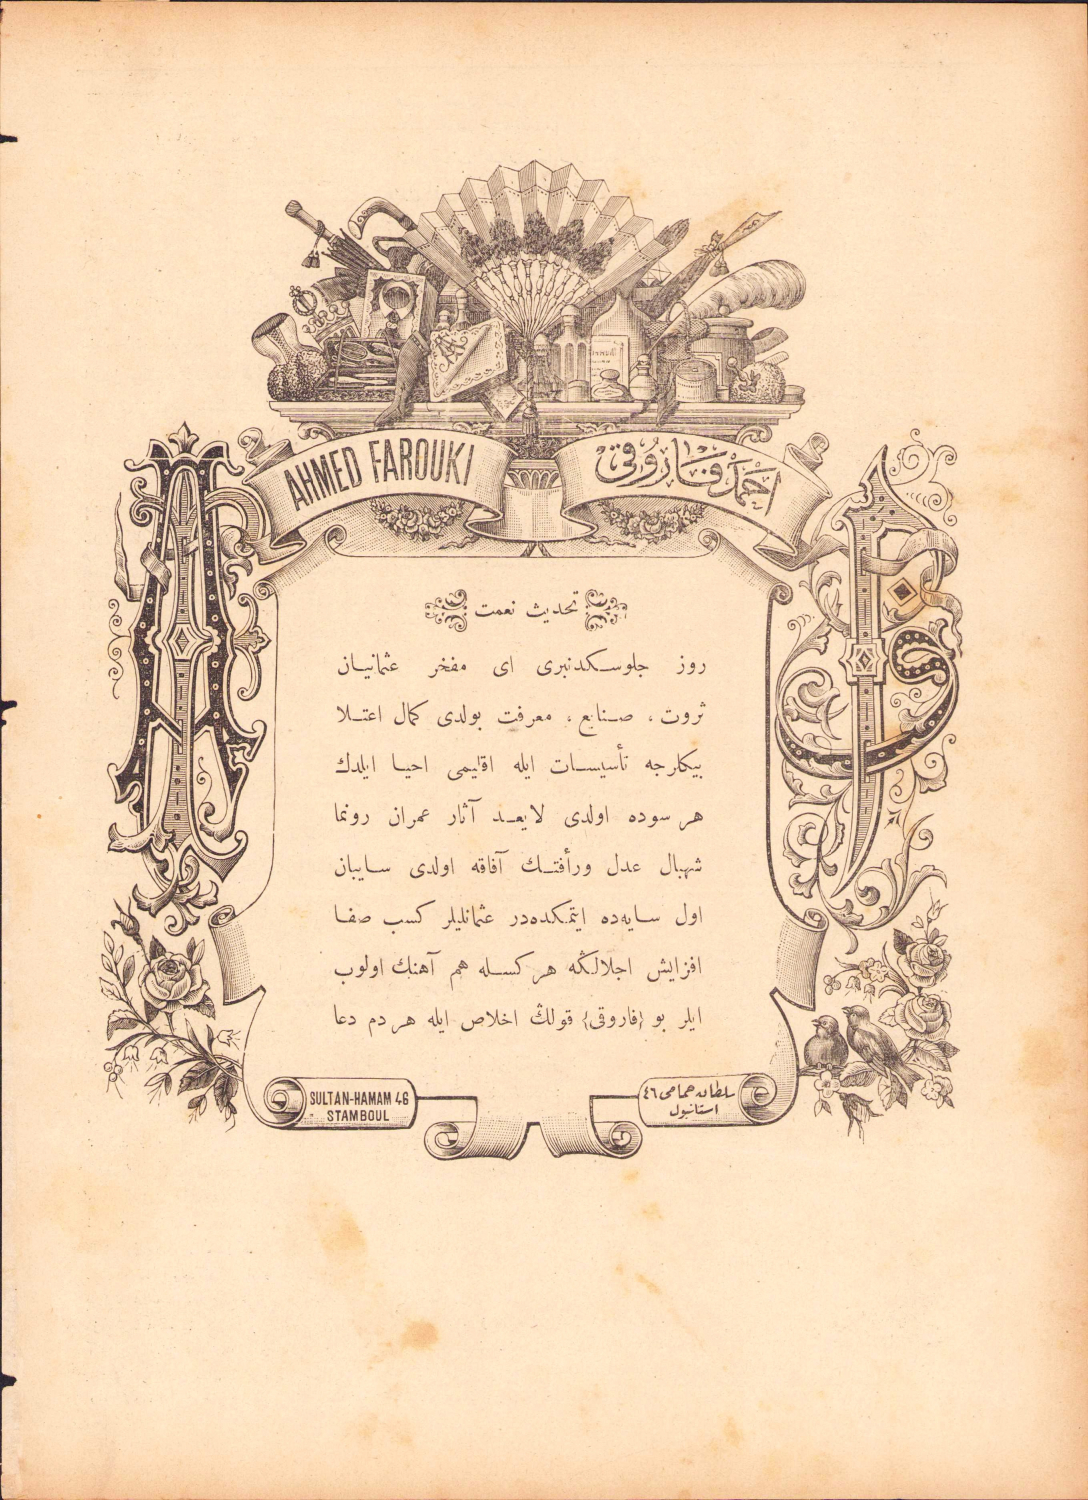 AHMED FAROUKI
احمد فاروقی
تحدیث نعمت
روز جلوسكدنبری ای مفخر عثمانیان
ثروت ، صنایع ، معرفت بولدی كمال اعتلا
بیكلرجه تأسیسات ایله اقلیمی احیا ایلدك
هر سوده اولدی لایعد آثار عمران رونما
شهبال عدل ورأفتك آفاقه اولدی سایبان
اول سایه‌ده ایتمكده‌در عثمانلیلر كسب صفا
افزایش اجلالڭه هركسله هم آهنك اولوب
ایلر بو {فاروقی} قولڭ اخلاص ایله هر دم دعا
SULTAN-HAMAM 46
STAMBOUL
سلطان حمامی ٤٦
استانبول